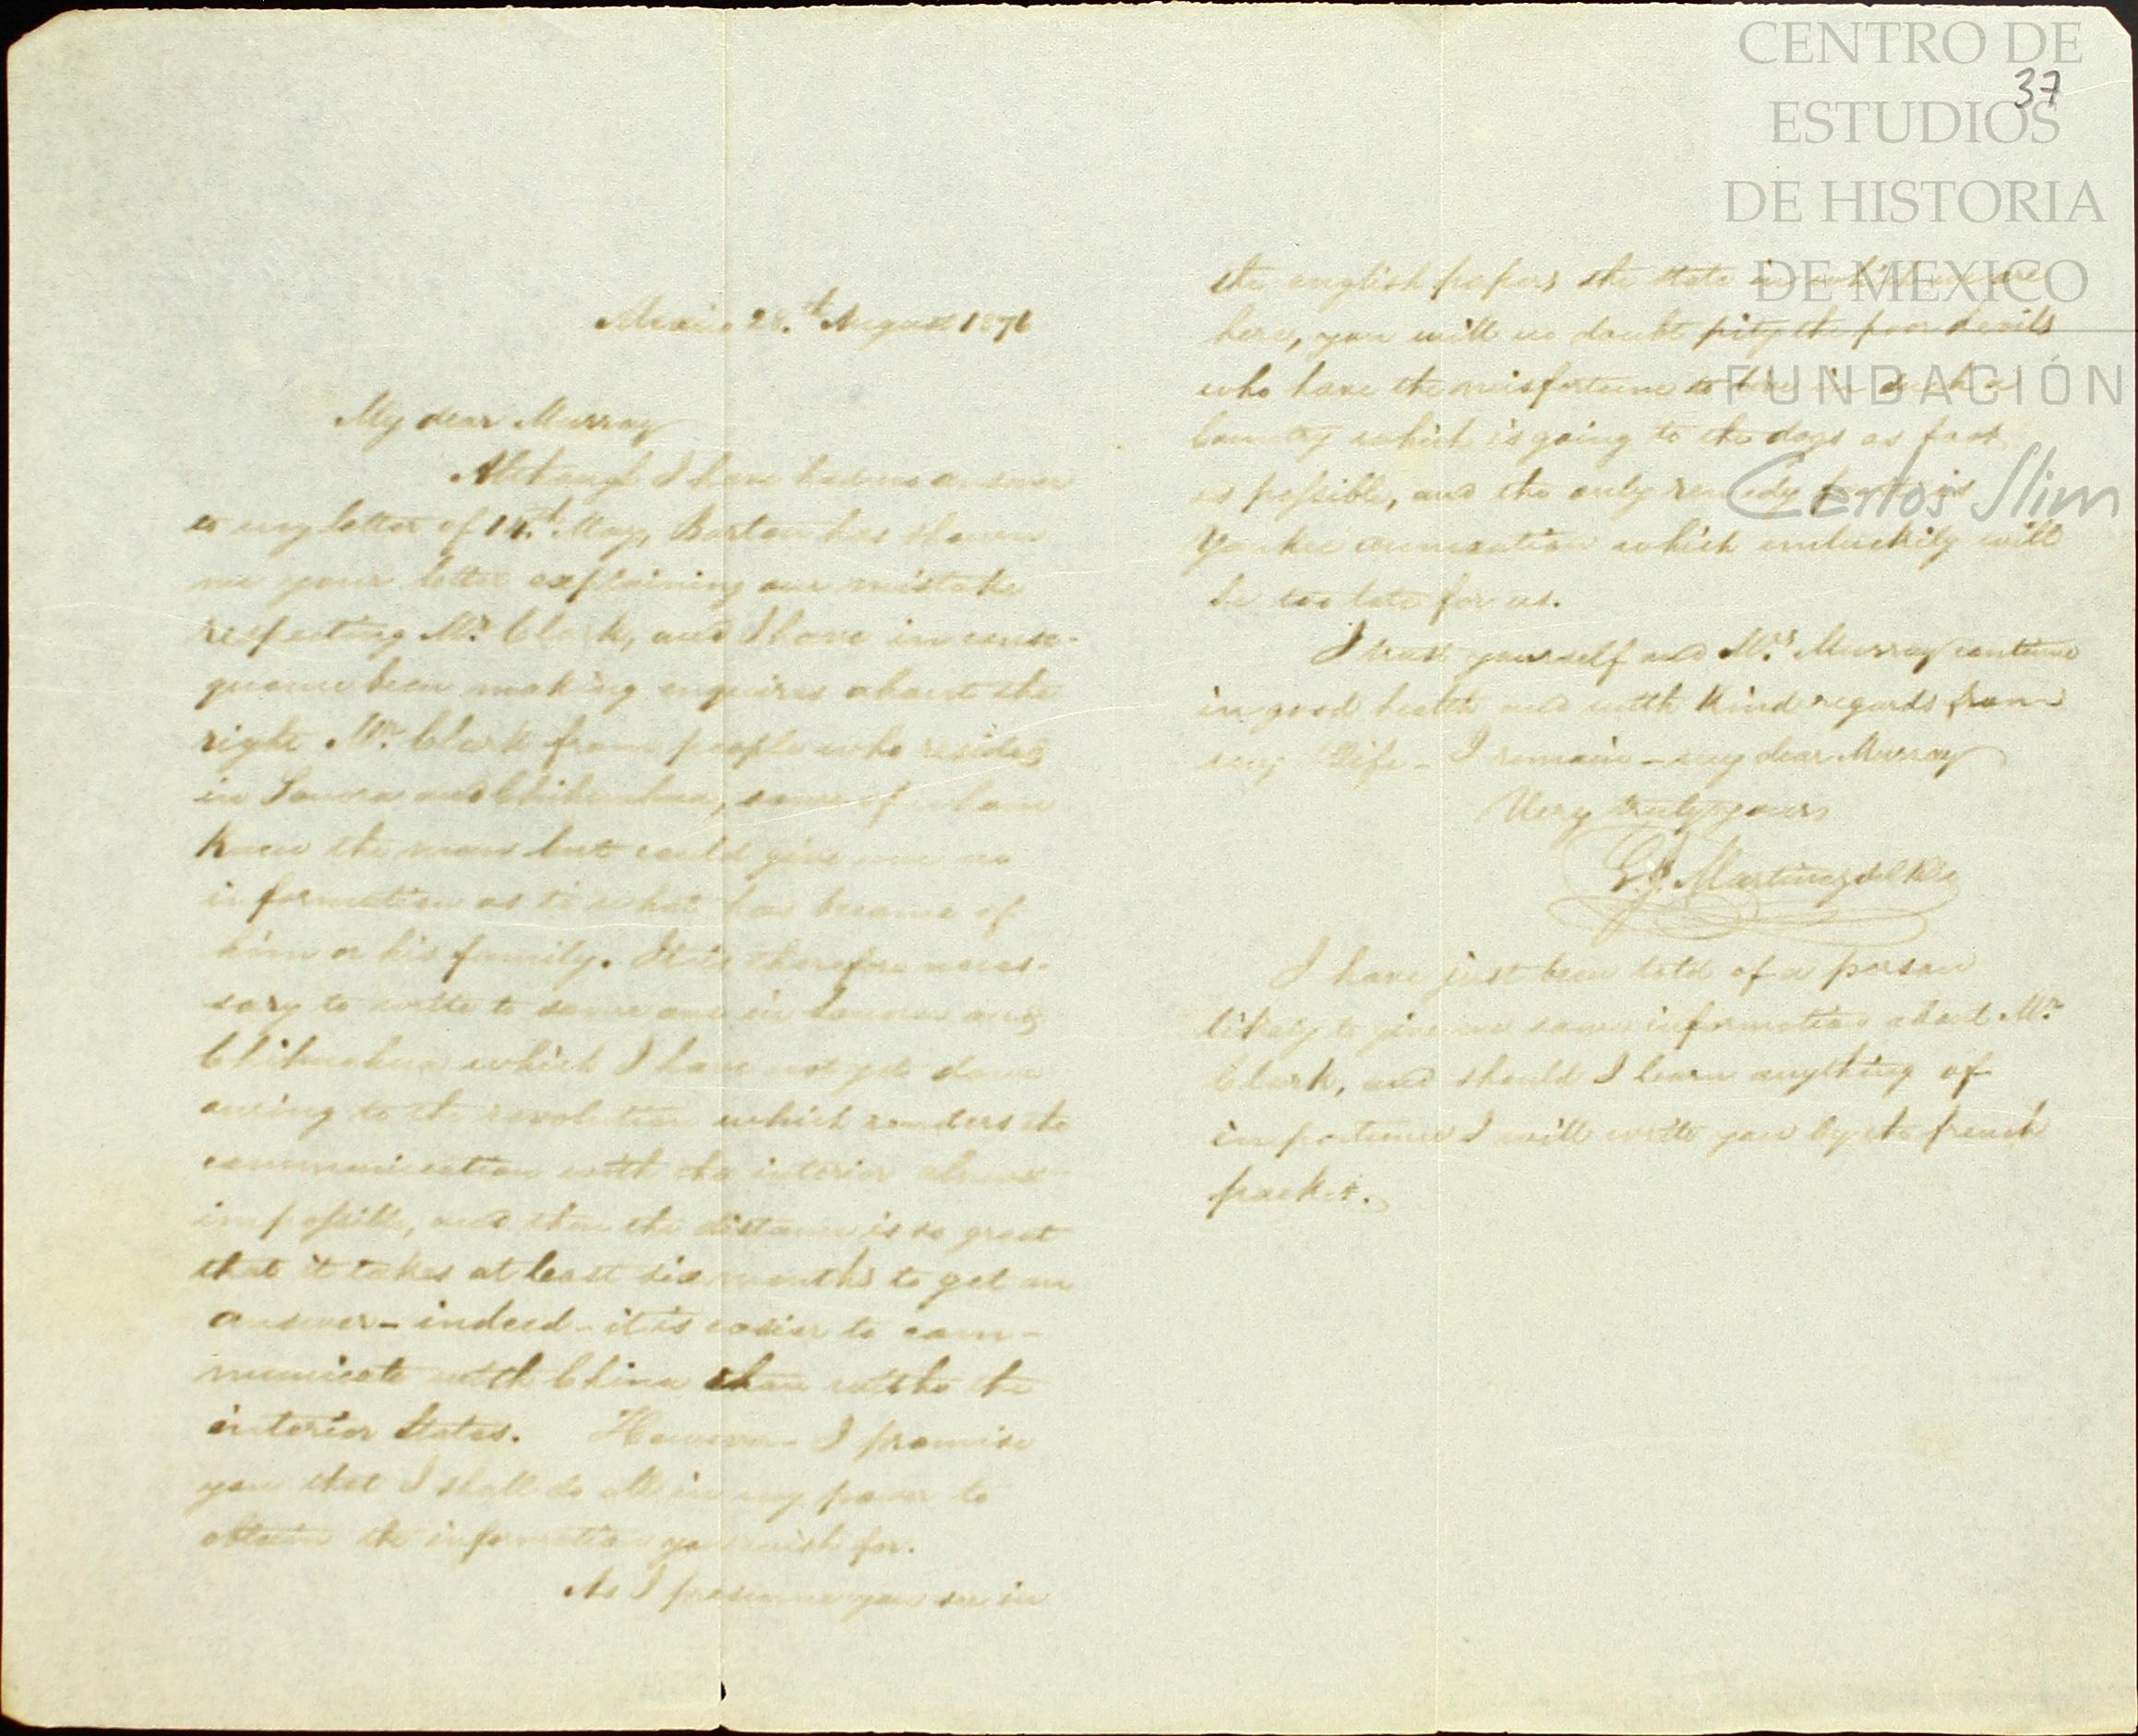 37
Mexico 28.th August 1876
My dear Murray
Although I have had no answer
to my letter of 14th May, Barton has shown
me your letter explaining our mistake
respecting Mr. Clark, and I have in conse-
quence been making enquiries about the
right Mr. Clark from people who resided
in Sonora and Chihuahua, some of whom
knew the man but could give me no
information as to what has become of
him or his family. It is therefore neces-
sary to write to some one in Sonora and
Chihuahua which I have not yet done
owing to the revolution which renders the
communication with the interior almost
impossible, and then the distance is so great
that it takes at least six months to get an
answer - indeed - it is easier to com-
municate with China than with the
interior States. However - I promise
you that I shall do all in my power to
obtain the information you wish for.
As I presume you see in
the english papers the state in which we are
here, you will no doubt pity the poor devils
who have the misfortune to live in such a
Country which is going to the dogs as fast
as possible, and the only remedy is
Yankee annexation which unluckily will
be too late for us.
I trust yourself and Mrs. Murray continue
in good health and with kind regards from
my Wife - I remain - my dear Murray
Very truly yours
Martinez del Rio
I have just been told of a person
likely to give me some information about Mr.
Clark, and should I learn anything of
importance I will write you by the french
packet.
CENTRO DE
ESTUDIOS
DE HISTORIA
DE MEXICO
FUNDACIÓN
Carlos Slim